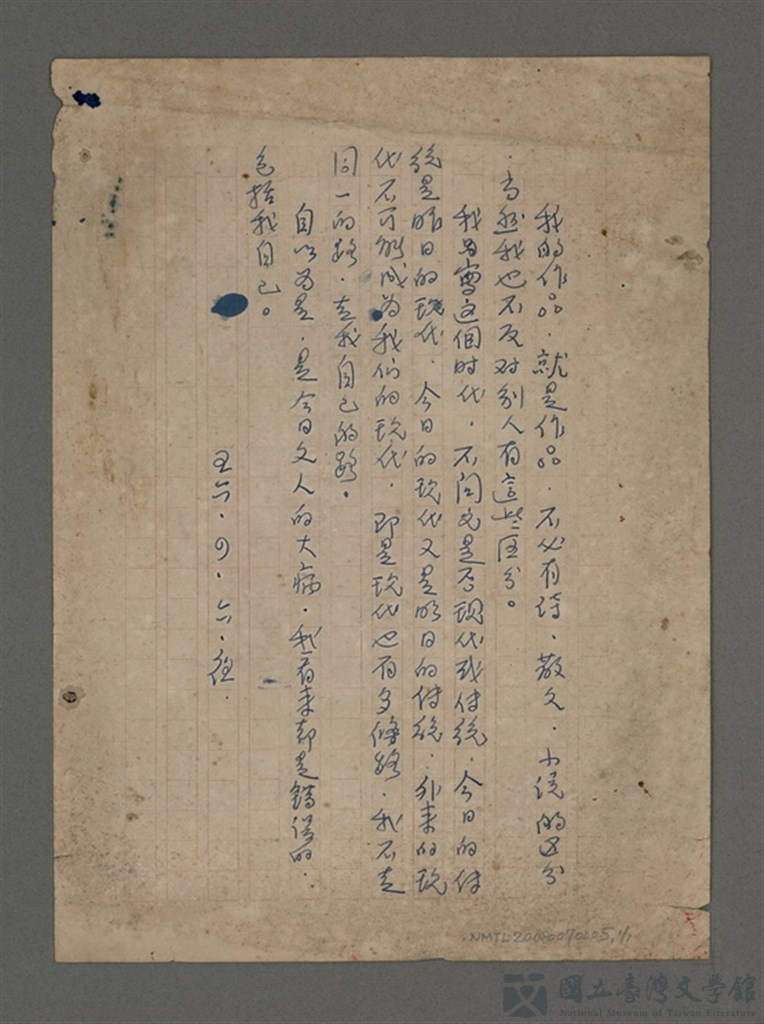 我的作品．就是作品．不必有詩、散文．小说的区分
．当然我也不反对别人有這些区分。
我只寫这個时代．不问它是否现代或传统．今日的传
统是昨日的现代．今日的现代又是明日的传統．外来的现
代不可能成为我们的现代．即是现代也有多條路．我不走
同一的路．走我自己的路。
自以为是．是今日文人的大病．我看来却是錯误的．
包括我自己。
五六．9．六．夜．
NMTL20080070005,1/1
國立臺灣文學館
National Museum of Taiwan Literature